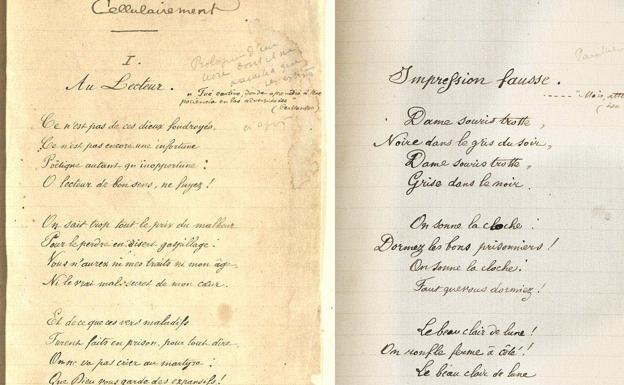 Cellulairement
I.
Au Lecteur.
Prologue d'un
livre dont il ne
paraîtra que
" Fué cautivo, donde aprendió á tener
paciencia en las adversidades
(Cervantes)
Ce n'est pas de ces dieux foudroyés,
Ce n'est pas encore une infortune
Poétique autant qu'inopportune :
O lecteur de bon sens, ne fuyez !
On sait trop tout le prix du malheur
Pour le perdre en disert gaspillage.
Vous n'aurez ni mes traits ni mon âge,
Ni le vrai mal secret de mon cœur.
Et de ce que ces vers maladifs
Furent faits en prison, pour tout dire,
On ne va pas crier au martyre :
Que Dieu vous garde des expansifs !
Impression fausse.
Dame souris trotte,
Noire dans le gris du soir,
Dame souris trotte,
Grise dans le noir.
On sonne la cloche :
Dormez les bons prisonniers !
On sonne la cloche :
Faut que vous dormiez !
Le beau clair de lune !
On ronfle ferme à côté !
Le beau clair de lune